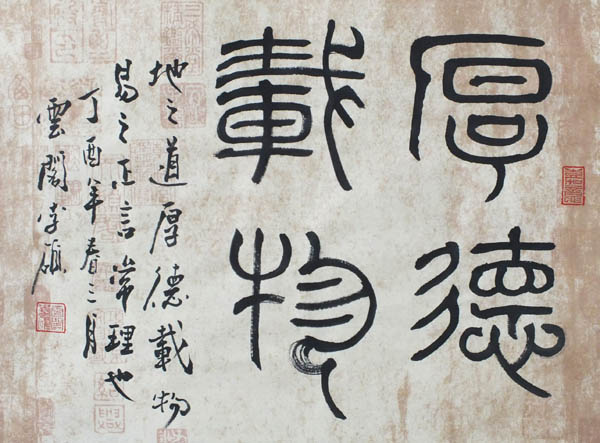 厚德
載物
地之道厚德載物
易之正言常理也
丁酉年春二月
雲閣李碩